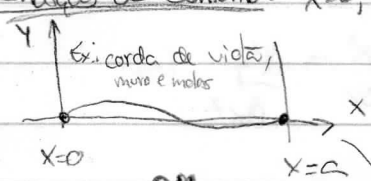 Y
Ex: corda de violão,
muro e molas
X
X=0
X=a